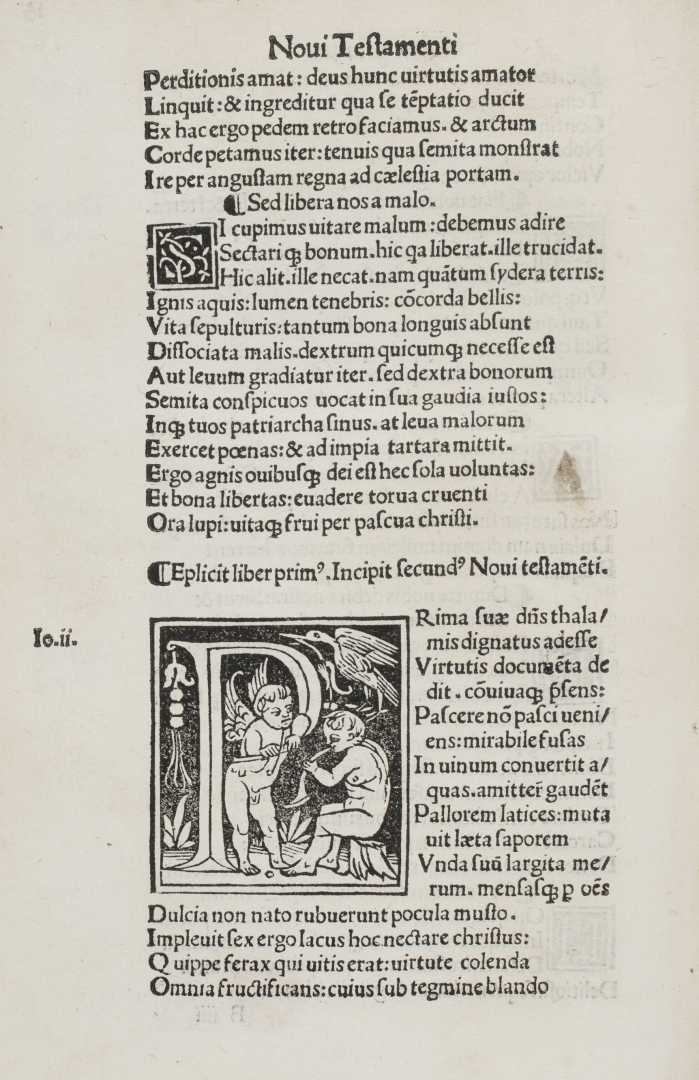 Noui Teſtamenti
Perditionis amat: deus hunc uirtutis amator
Linquit: & ingreditur qua ſe tēptatio ducit
Ex hac ergo pedem retro faciamus. & arctum
Corde petamus iter: tenuis qua ſemita monſtrat
Ire per anguſtam regna ad cæleſtia portam.
¶ Sed libera nos a malo.
SI cupimus uitare malum: debemus adire
Sectariqꝫ bonum. hic qa liberat. ille trucidat.
Hic alit. ille necat. nam quātum ſydera terris:
Ignis aquis: lumen tenebris: cōcorda bellis:
Vita ſepulturis: tantum bona longuis abſunt
Diſſociata malis. dextrum quicumqꝫ neceſſe eſt
Aut leuum gradiatur iter. ſed dextra bonorum
Semita conſpicuos uocat in ſua gaudia iuſtos:
Inqꝫ tuos patriarcha ſinus. at leua malorum
Exercet pœnas: & ad impia tartara mittit.
Ergo agnis ouibuſqꝫ dei eſt hec ſola uoluntas:
Et bona libertas: euadere torua cruenti
Ora lupi: uitaqꝫ frui per paſcua chriſti.
¶ Eplicit liber primꝰ. Incipit ſecundꝰ Noui teſtamēti.
Io.ii.
PRima ſuæ dn̄s thala/
mis dignatus adeſſe
Virtutis documēta de
dit. cōuiuaqꝫ p̄ſens:
Paſcere nō paſci ueni/
ens: mirabile fuſas
In uinum conuertit a/
quas. amitter̄ gaudēt
Pallorem latices: muta
uit læta ſaporem
Vnda ſuū largita me/
rum. menſaſqꝫ ꝑ oēs
Dulcia non nato rubuerunt pocula muſto.
Impleuit ſex ergo lacus hoc nectare chriſtus:
Quippe ferax qui uitis erat: uirtute colenda
Omnia fructificans: cuius ſub tegmine blando